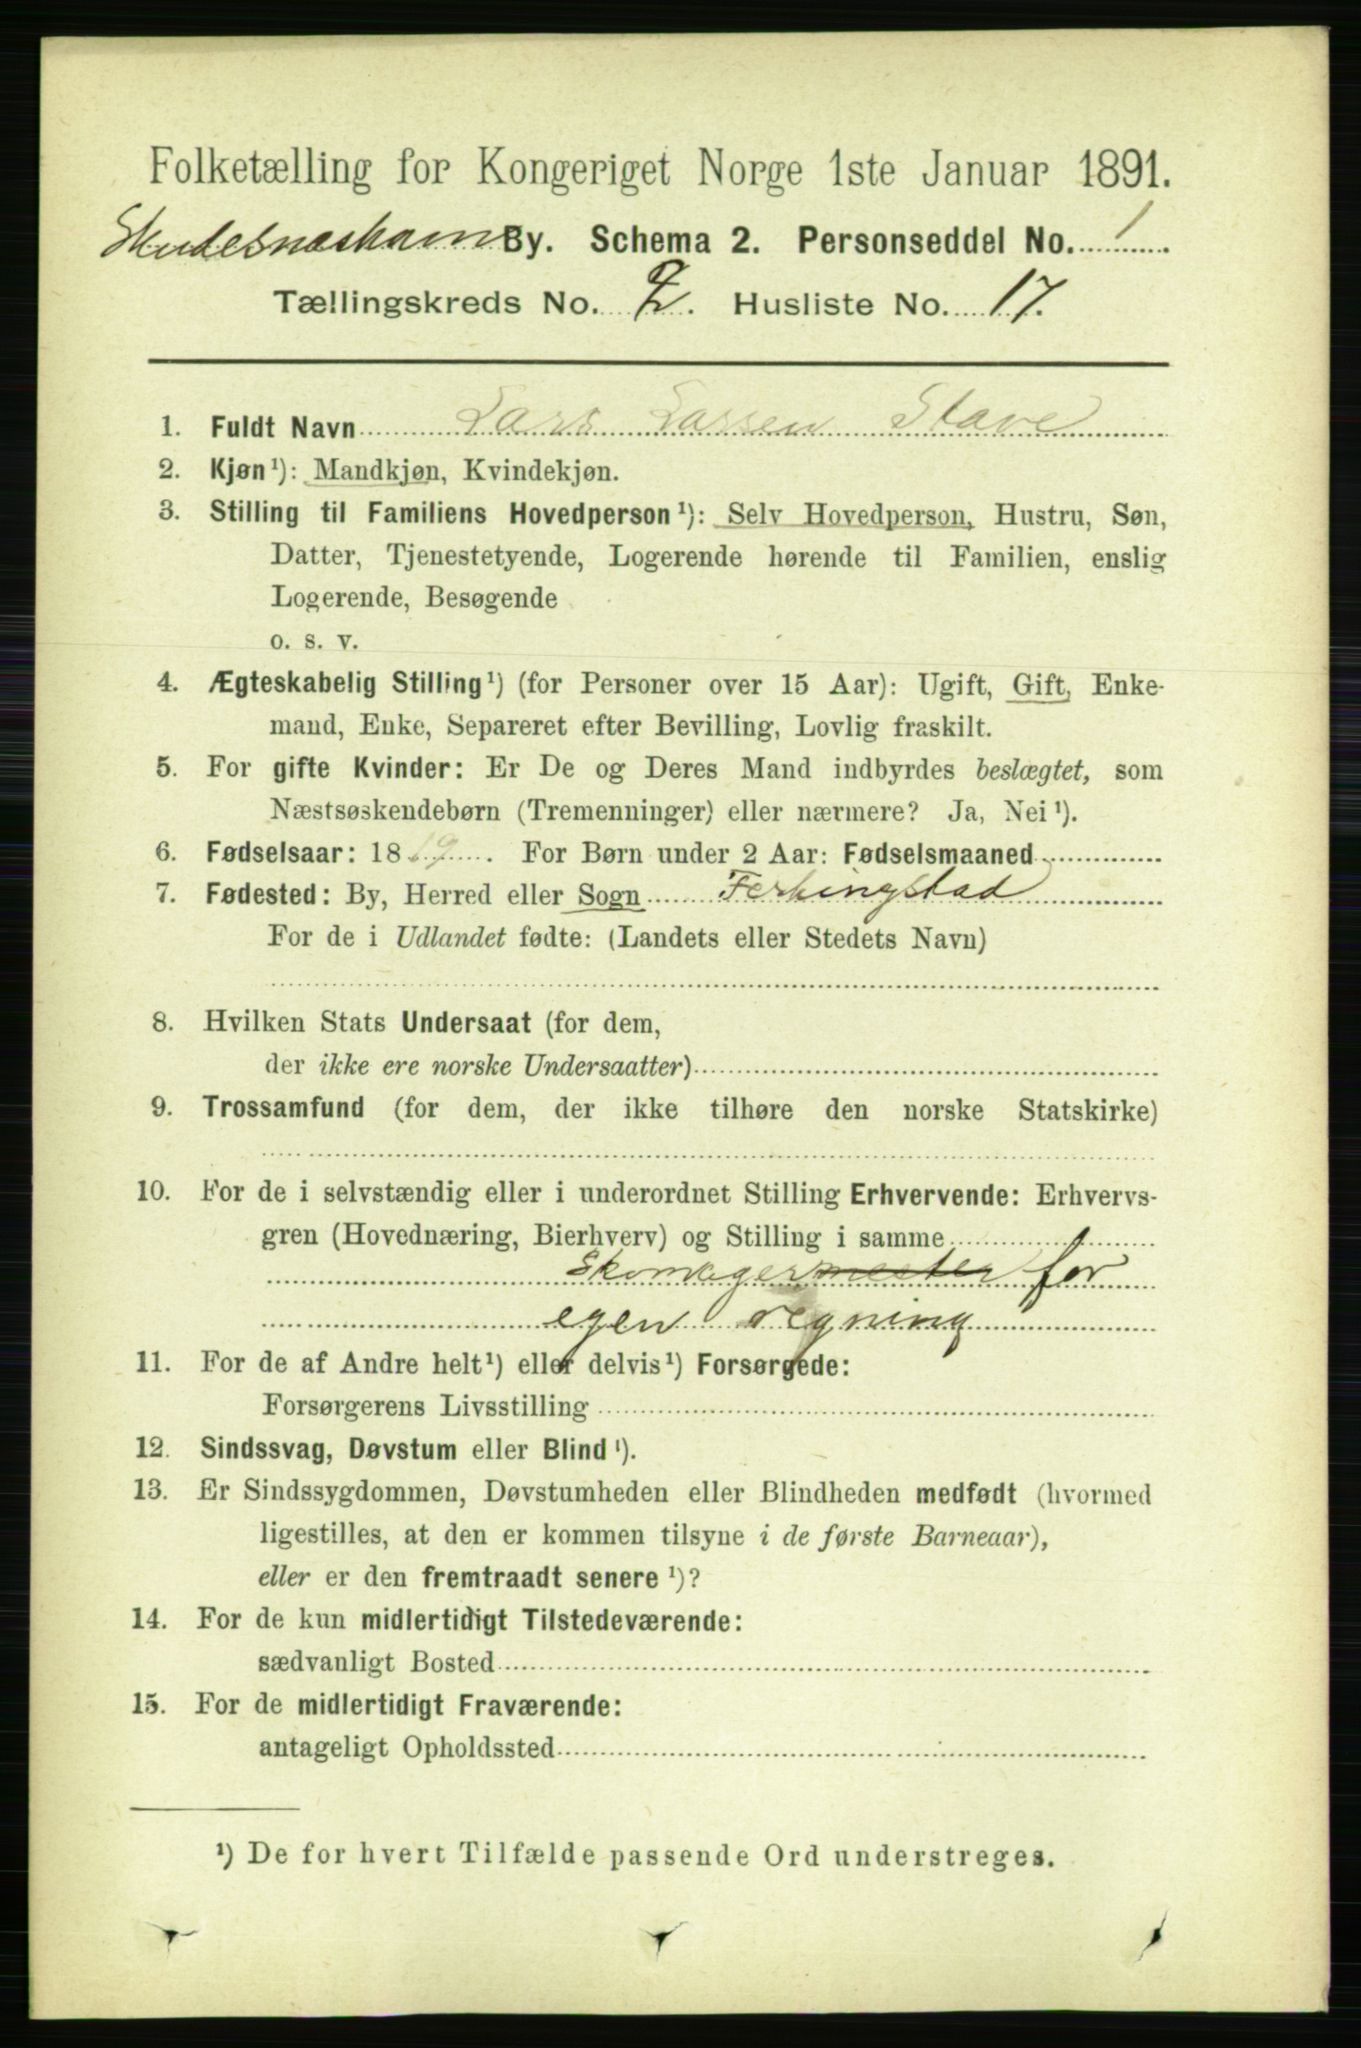 Folketælling for Kongeriget Norge 1ste Januar 1891.
Skudesnæshavn By. Schema 2. Personseddel No. 1
Tællingskreds No. 2. Husliste No. 17.
1. Fuldt Navn Lars Larsen Stave
2. Kjøn¹): Mandkjøn, Kvindekjøn.
3. Stilling til Familiens Hovedperson¹): Selv Hovedperson, Hustru, Søn,
Datter, Tjenestetyende, Logerende hørende til Familien, enslig
Logerende, Besøgende
o. s. v.
4. Ægteskabelig Stilling¹) (for Personer over 15 Aar): Ugift, Gift, Enke-
mand, Enke, Separeret efter Bevilling, Lovlig fraskilt.
5. For gifte Kvinder: Er De og Deres Mand indbyrdes beslægtet, som
Næstsøskendebørn (Tremenninger) eller nærmere? Ja, Nei¹).
6. Fødselsaar: 18 . For Børn under 2 Aar: Fødselsmaaned
7. Fødested: By, Herred eller Sogn Ferkingstad
For de i Udlandet fødte: (Landets eller Stedets Navn)
8. Hvilken Stats Undersaat (for dem,
der ikke ere norske Undersaatter)
9. Trossamfund (for dem, der ikke tilhøre den norske Statskirke)
10. For de i selvstændig eller i underordnet Stilling Erhvervende: Erhvervs-
gren (Hovednæring, Bierhverv) og Stilling i samme
Skomagermester for
egen regning
11. For de af Andre helt¹) eller delvis¹) Forsørgede:
Forsørgerens Livsstilling
12. Sindssvag, Døvstum eller Blind¹).
13. Er Sindssygdommen, Døvstumheden eller Blindheden medfødt (hvormed
ligestilles, at den er kommen tilsyne i de første Barneaar),
eller er den fremtraadt senere¹)?
14. For de kun midlertidigt Tilstedeværende:
sædvanligt Bosted
15. For de midlertidigt Fraværende:
antageligt Opholdssted
¹) De for hvert Tilfælde passende Ord understreges.